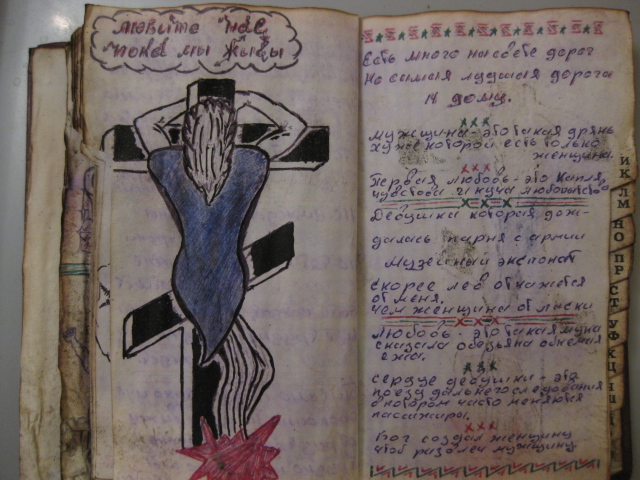 любите нас
пока мы живы
Есть много на свете дорог
Но самая лудшая дорога
к дому.
ххх
мужщина - это такая дрянь
хуже которой есть только
женщина.
ххх
Первая любовь - это капля
чувства и куча любопытства
ххх
Девушки которая дож-
далась парня с армии
Музейный экспонат
скорее лев откажется
от мяса,
чем женщина от ласки
ххх
Любовь - это такая мука
сказала обезьяна обнемая
ежа.
ххх
сердце девушки - это
поезд дальнего следования
в котором часто меняются
пассажиры.
ххх
Бог создал женщину
чтоб развлеч мужщину
И
К
Л
М
Н
О
П
Р
С
Т
У
Ф
Х
Ц